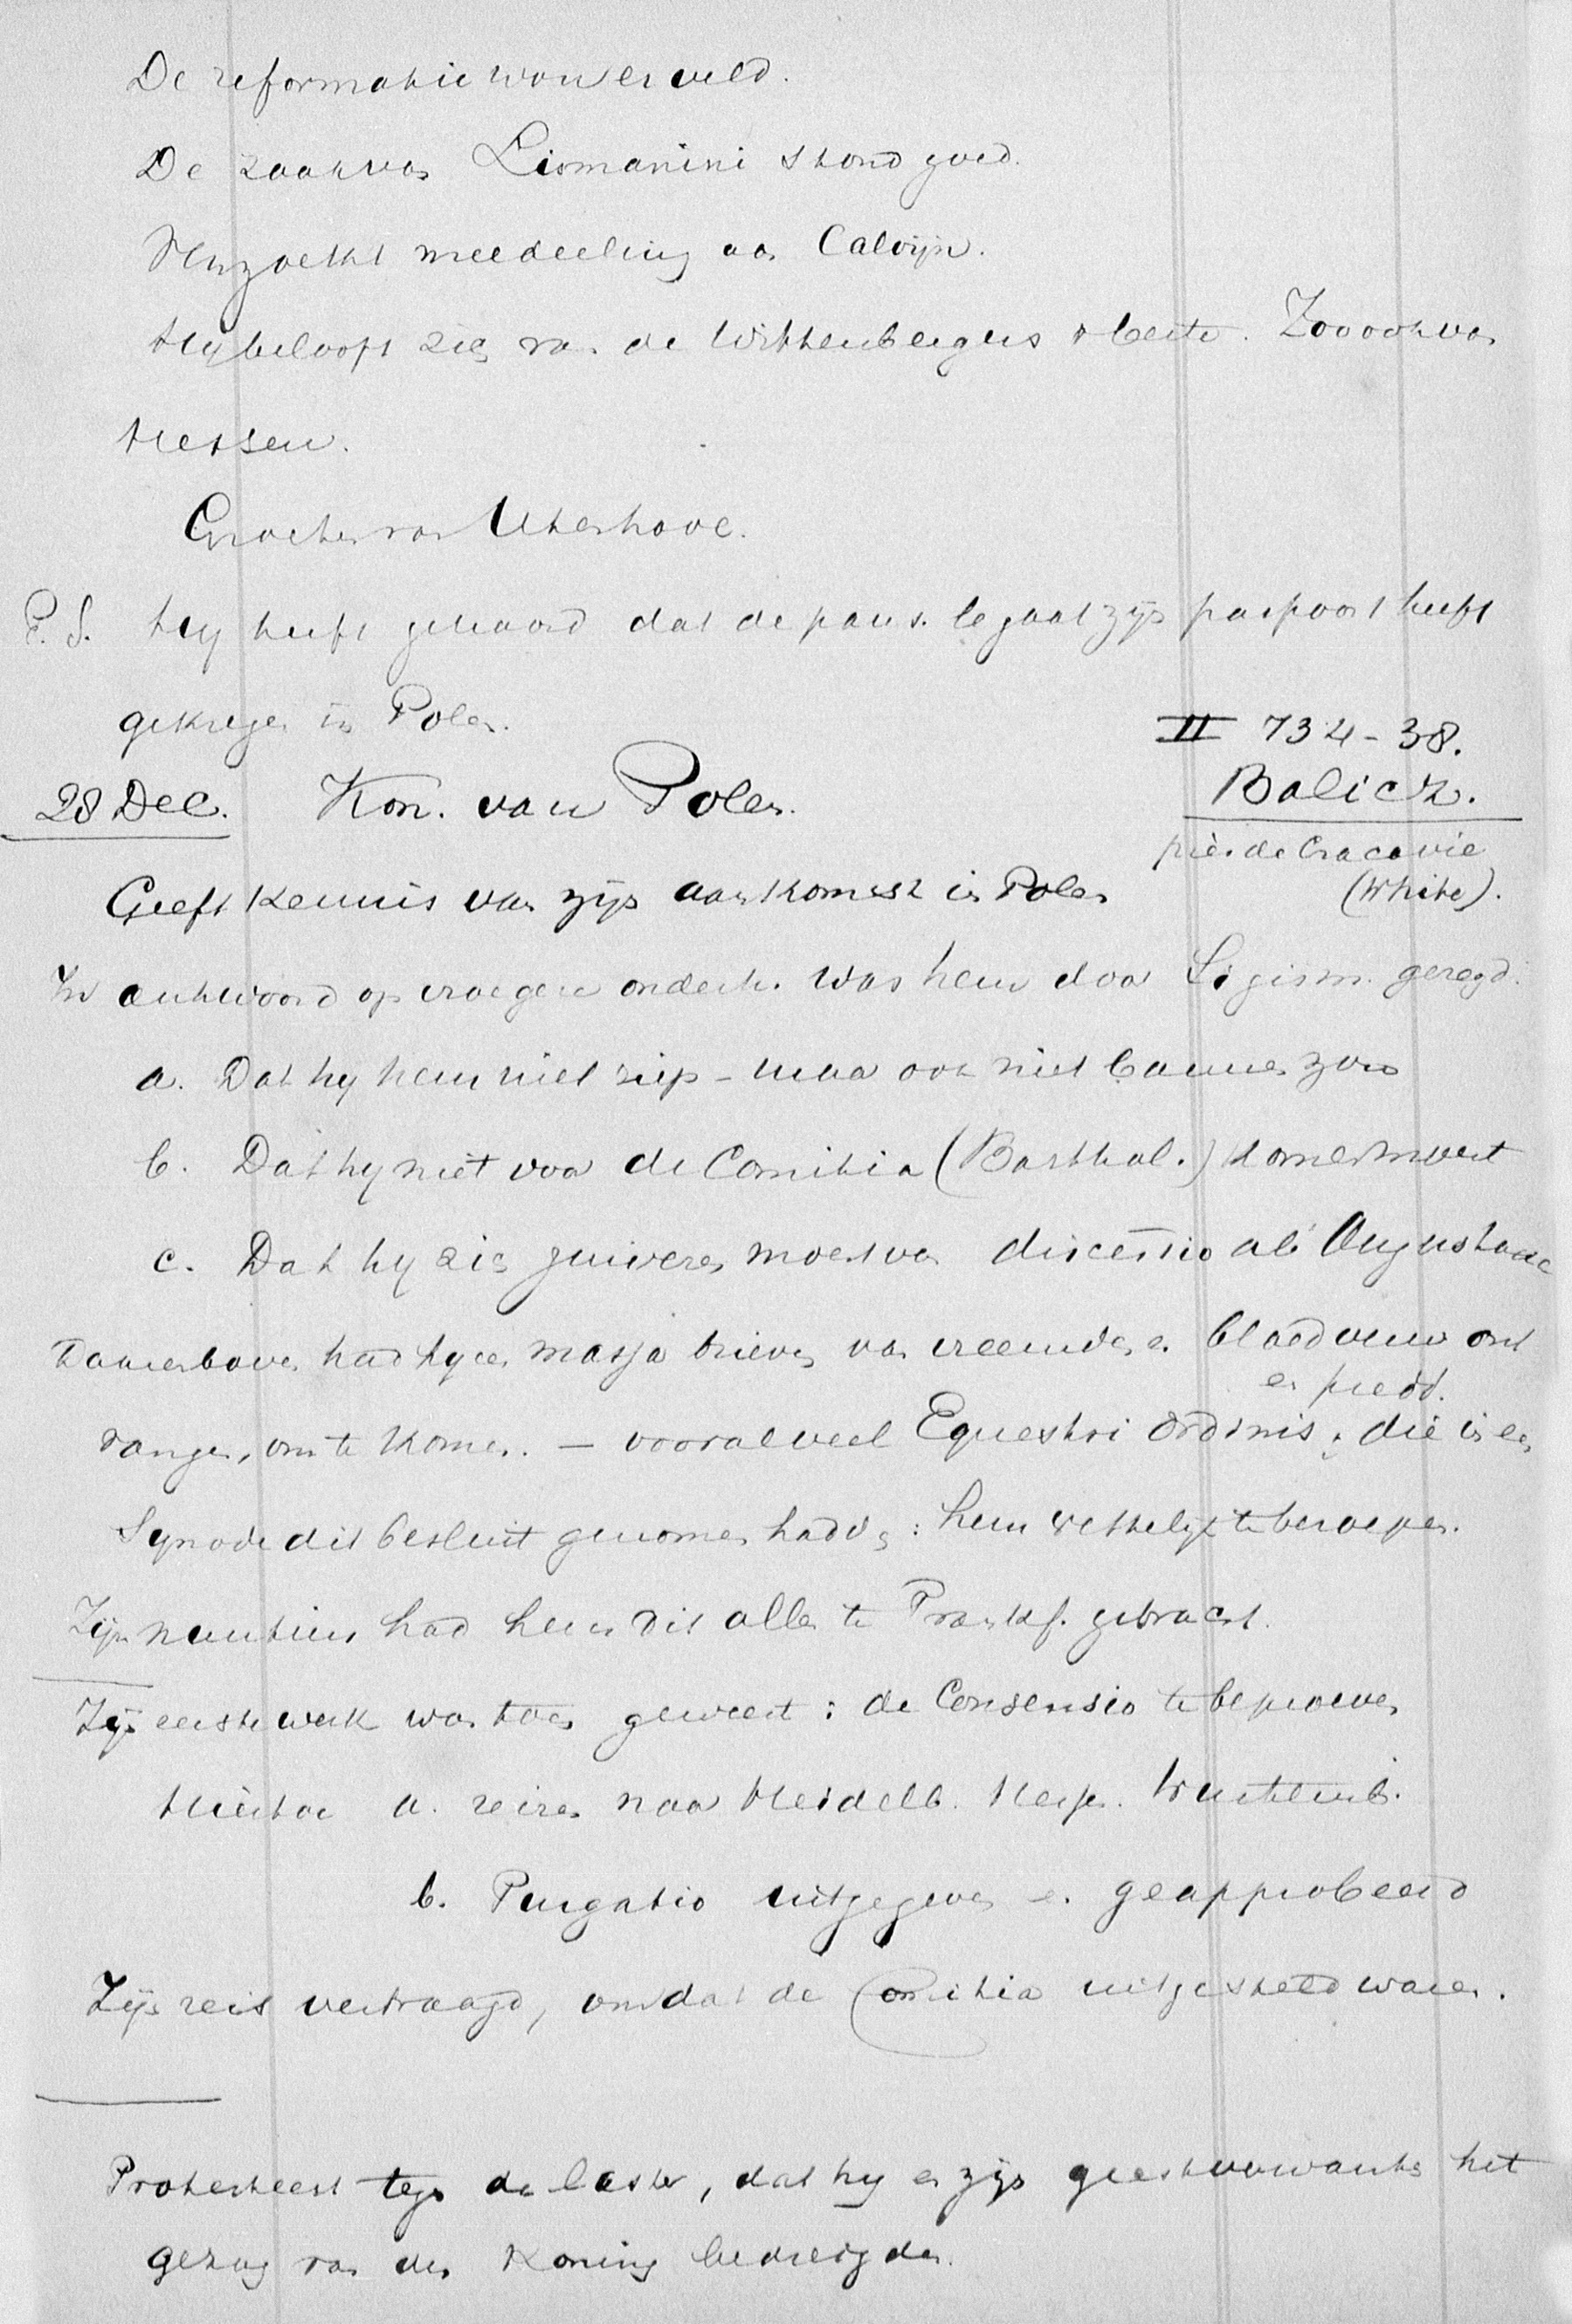 De reformatie won er veld.
De zaak van Lismanini stond goed.
Verzoekt meedeeling aan Calvijn.
Hij belooft zich van de Wittenbergers 't beste. Zoo ook van
Hessen.
Groeten van Utenhove.
P.S. Hij heeft gehoord dat de paus. legaat zijn paspoort heeft
gekregen in Polen.
II 734-38.
28 Dec. Kon. van Polen.
Balicz.
près de Cracovie
(White).
Geeft kennis van zijn aankomst in Polen
In antwoord op vroegere onderh. was hem door Sigism. gezegd.
a. Dat hy hem niet riep - maar ook niet bannen zou
b. Dat hy niet voor de Comitia (Barthol.) komen moest
c. Dat hy zich zuiveren moest van discessio ab Augustana
Daarenboven had hy een massa brieven van vreemden en bloedverw. ont
en predd.
vangen, om te komen. — vooral veel Equestri Ordinis; die in een
Synode dit besluit genomen hadden: hem wettelijk te beroepen.
Zijn nuntius had hem dit alles te Frankf. gebracht.
Zijn eerste werk was toen geweest: de Consensio te beproeven
Hiertoe a. reizen naar Heidelb. Hess. Wurtemb.
b. Purgatio uitgegeven en geapprobeerd
Zijn reis vertraagd, omdat de Comitia uitgesteld waren.
Protesteert tegen de laster, dat hy en zijn geestverwanten het
gezag van den Koning bedreigden.